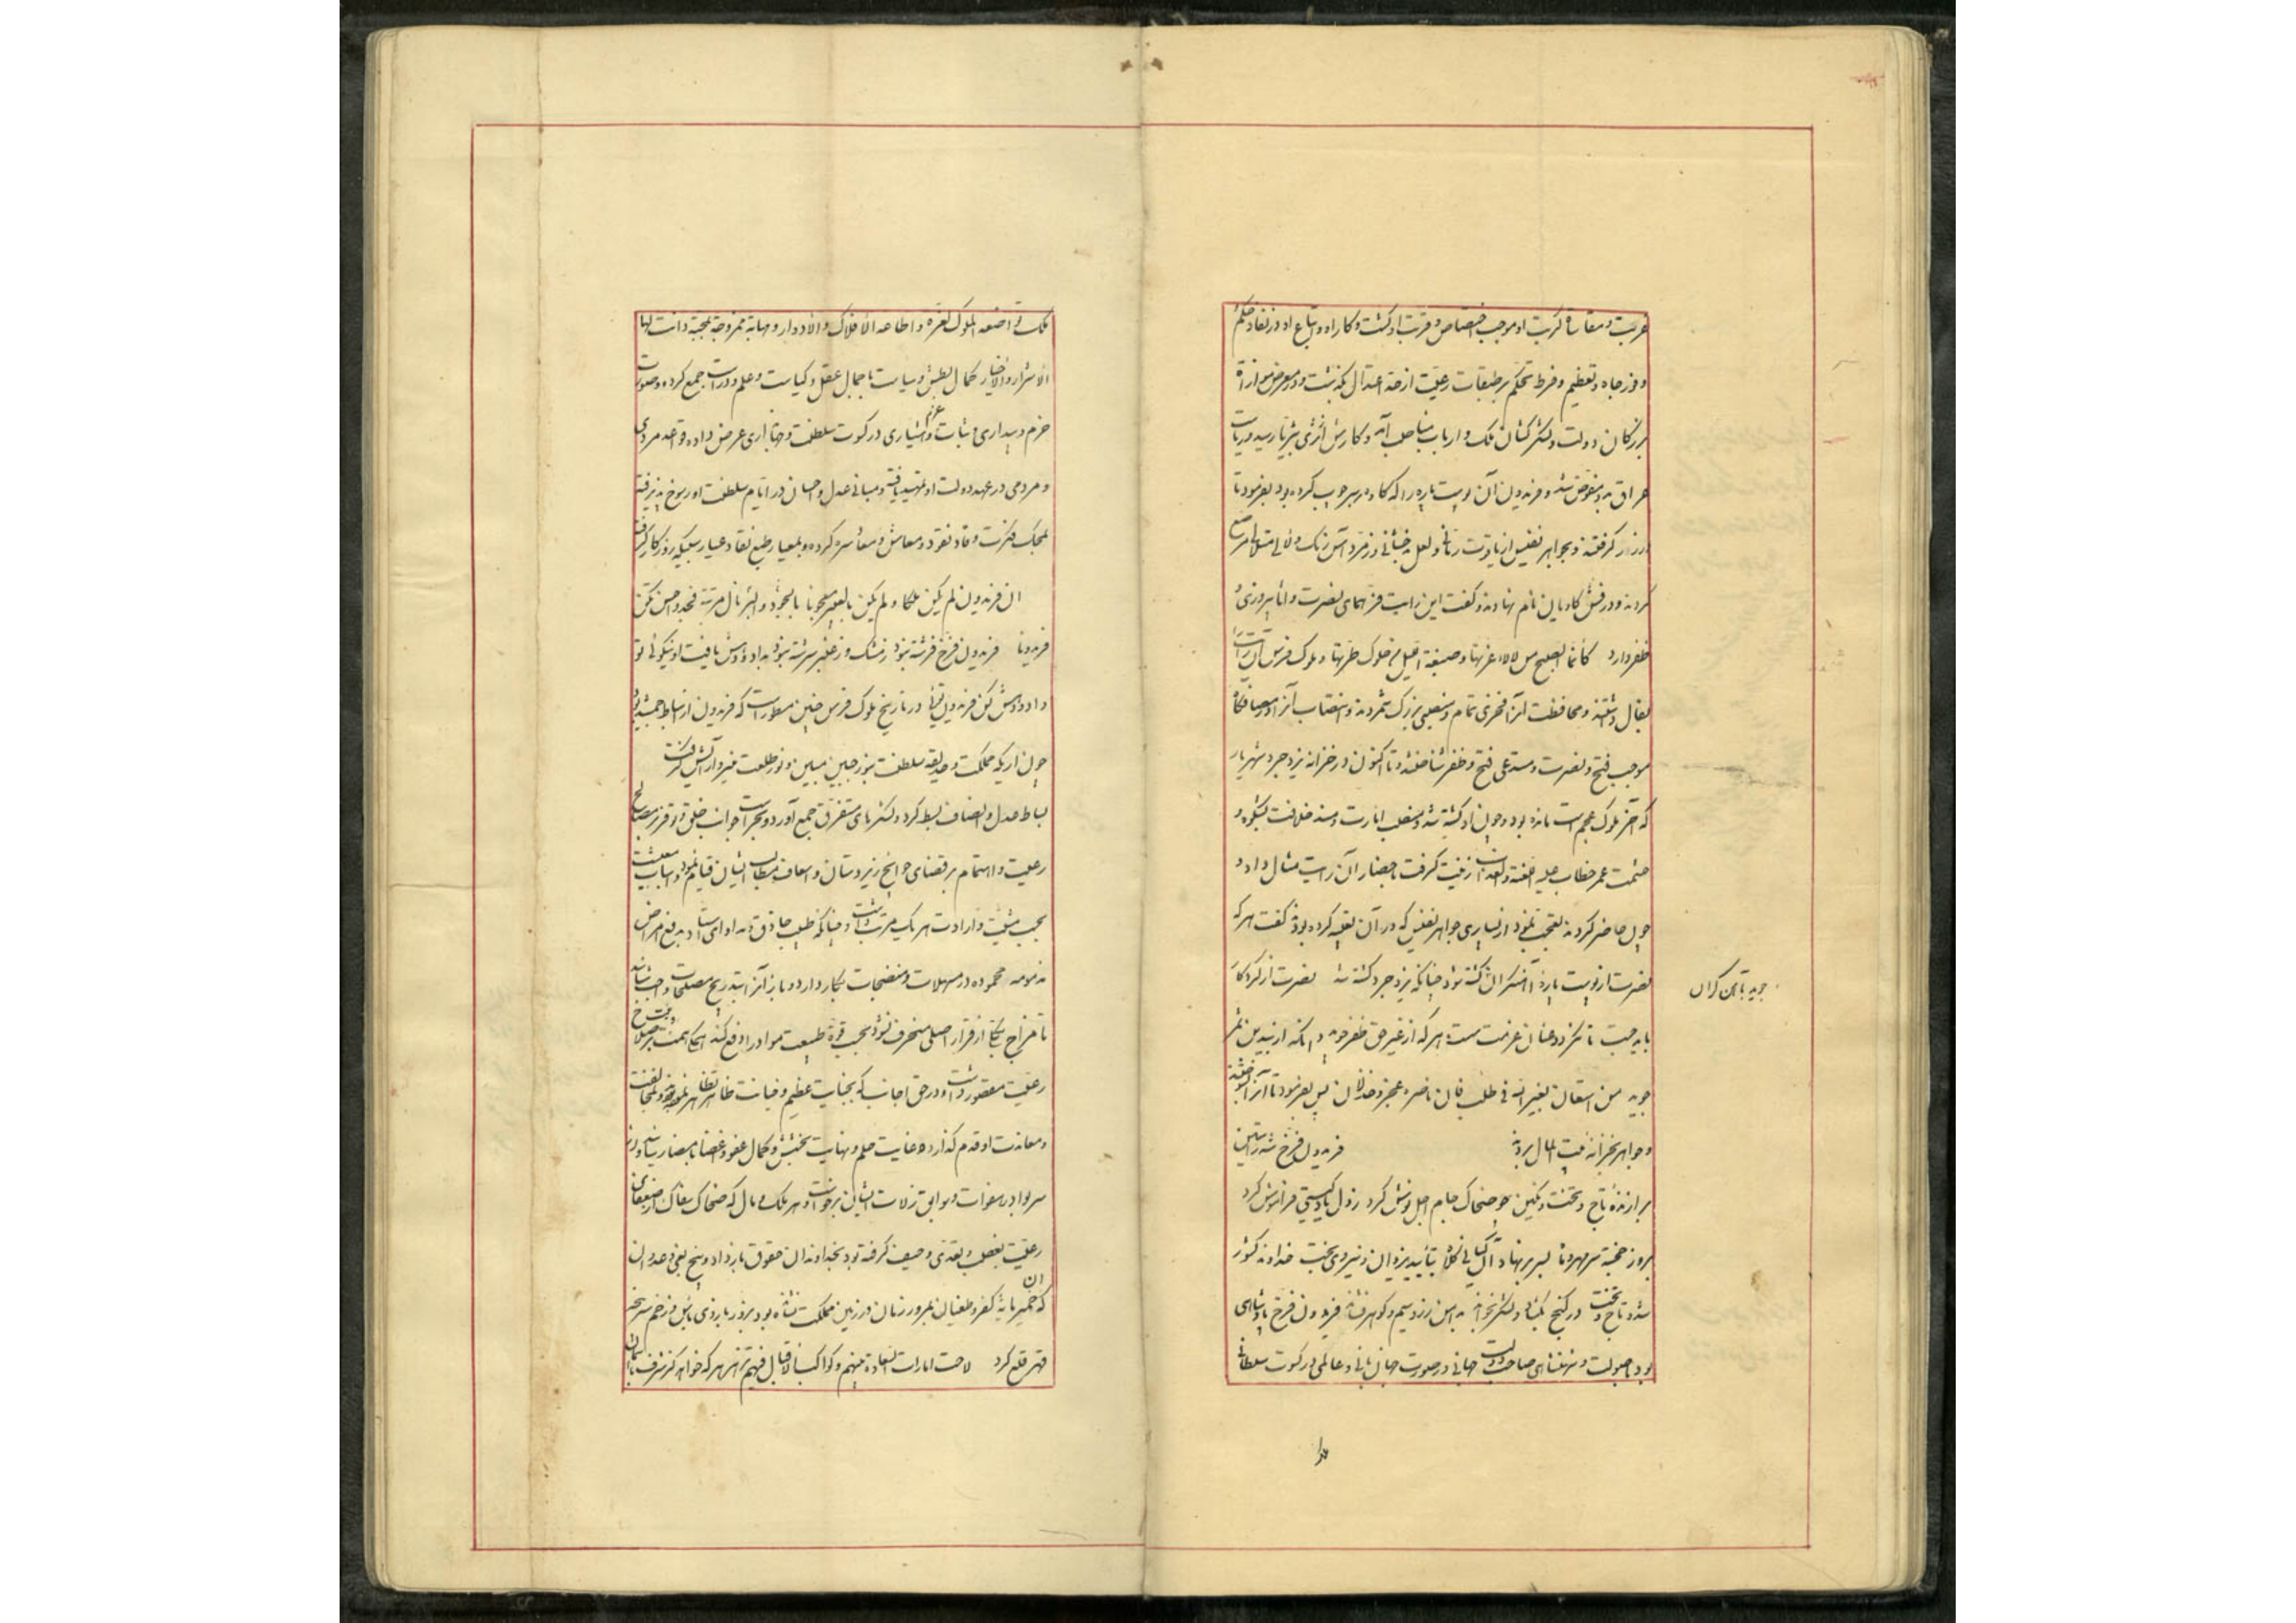 حربت و مقاساة کربت او موجب اختصاص و قربت او گشت و کار او و اتباع او در نفاذ حکم
و وفور جاه و تعظیم و فرط تحکم بر طبقات رعیت از حد اعتدال بگذشت و در معرض موازاة
بزرگان دولت و لشکرکشان ملک و ارباب مناصب آمد و کارش از ثری بثریا رسید و ریاست
عراق بدو مفوض شد و فریدون آن پوست پاره را که کاوه بر سر چوب کرده بود بفرمود تا
در زر گرفتند و بجواهر نفیس از یاقوت رمانی و لعل بدخشانی و زمرد
کردند و درفش کاویان نام نهادند و گفت این رایت فر همای نصرت و
ظفر دارد کانما الصبح من
بفال داشتند و محافظت آنرا فخری تمام و منصبی بزرگ شمردند و انتصاب آنرا در مصاف گاه
موجب فتح و نصرت و مستدعی فتح و ظفر شناختند و تا اکنون در خزانه یزدجرد شهریار
که آخر ملوک عجم است مانده بود و چون او کشته شد و منصب امارت و مسند خلافت بشکوه و
حشمت عمر خطاب علیه زینت گرفت باحضار آن رایت مثال داد و
چون حاضر کردند تعجب نمود از بسیاری جواهر نفیس که در آن تعبیه کرده بودند گفت هر که
نصرت از پوست پاره آهنگران کشته شود چنانکه یزدجرد کشته شد نصرت از کردگار
جوید تا آهنگران
باید جست تا نگردد عنان عزیمت سست هر که از غیر حق ظفر جوید
جوید من استعان بغیر الله فی طلب فان ناصره عجز و خذلان پس بفرمود تا آنرا بسوختند
و جواهر بخزانه بیت المال بردند فریدون فرخ شه راستین
برازنده تاج و تخت و نگین چو ضحاک جام اجل نوش کرد ز دل یاد گیتی فراموش کرد
بروز خجسته سر مهر ماه بسر بر نهاد آن کیانی کلاه بتأیید یزدان و نیروی بخت خداوند کشور
شد و تاج و تخت در گنج بگشاد و لشکر بخواند زر و سیم و گوهر فشاند فریدون فرخ پادشاهی
بود با صولت و شهنشاهی صاحب دولت جهانی در صورت جهان بانی و عالمی در کسوت سلطانی
ملک تواضعه الملوک لعزه و اطاعه الافلاک و الادوار و مهابة ممزوجة بمحبة دانت لها
الاشرار و الاخیار کمال بطش و سیاست با جمال عقل و کیاست و علم و دراست جمع کرده و صورت
حزم و بیداری و ثبات عزم و هشیاری در کسوت سلطنت و جهانداری عرض داده قواعد مردی
و مردمی در عهد دولت او تمهید یافته و مبانی عدل و احسان در ایام سلطنت او رسوخ پذیرفته
بمحک فکرت وقاد نقود و معاش و معاشره کرده و بمعیار طبع نقاد عیار سبیکه روزگار گرفته
ان فریدون لم یکن ملکا و لم یکن بالعبیر معجونا بالجود و البر نال مرتبة فجد و احسن تکن
فریدونا فریدون فرخ فرشته نبود ز مشک و ز عنبر سرشته نبود بداد و دهش یافت او نیکوئی تو
داد و دهش کن فریدون توئی در تاریخ ملوک فرس چنین مسطور است که فریدون از اسباط جمشید بود
چون اریکه مملکت و حدیقه سلطنت بنور جبین مبین و نور طلعت منیر او آرایش گرفت
بساط عدل و انصاف بسط کرد و لشکرهای متفرق جمع آورد و بحراست جوانب خلق و توفر بر مصالح
رعیت و اهتمام بر قضای حوایج زیردستان و اسعاف مطالب ایشان قیام نمود و اسباب معیشت
بحسب مشیت و ارادت هر یک مرتب داشت و چنانکه طبیب حاذق که مداوای استاد بدفع امراض
مذمومه محموده در مسهلات و منضجات بکار دارد و باز آنرا بتدریج بمصلحات واجب شناسد
تا مزاج بیکبار از قرار اصلی منحرف نشود بحسب قوة طبیعت مواد را دفع کند همت بر صلاح
رعیت مقصور داشت و در حق اجانب که بجنایت عظیم و خیانت ظاهر تظاهر نموده بودند و بمخالفت
و معاندت او قدم گذارده غایت حلم و نهایت بخشش و کمال عفو و اغضا بامضا رسانید و از
سر بوادر هفوات و سوابق زلات ایشان برخاست و هر ملک و مال که ضحاک سفاک از ضعفای
رعیت بغصب و تعدی و حیف گرفته بود بخداوندان حقوق باز داد و بیخ بغی و عدوان
که خمیر مایه کفر و طغیان بمرور زمان در زمین مملکت نشانده بود بزور بازوی باس و زخم سر پنجه
قهر قلع کرد لاحت امارات السعادة منهم و کواکب الاقبال فیهم تزهر هر که خواهد کز شرف